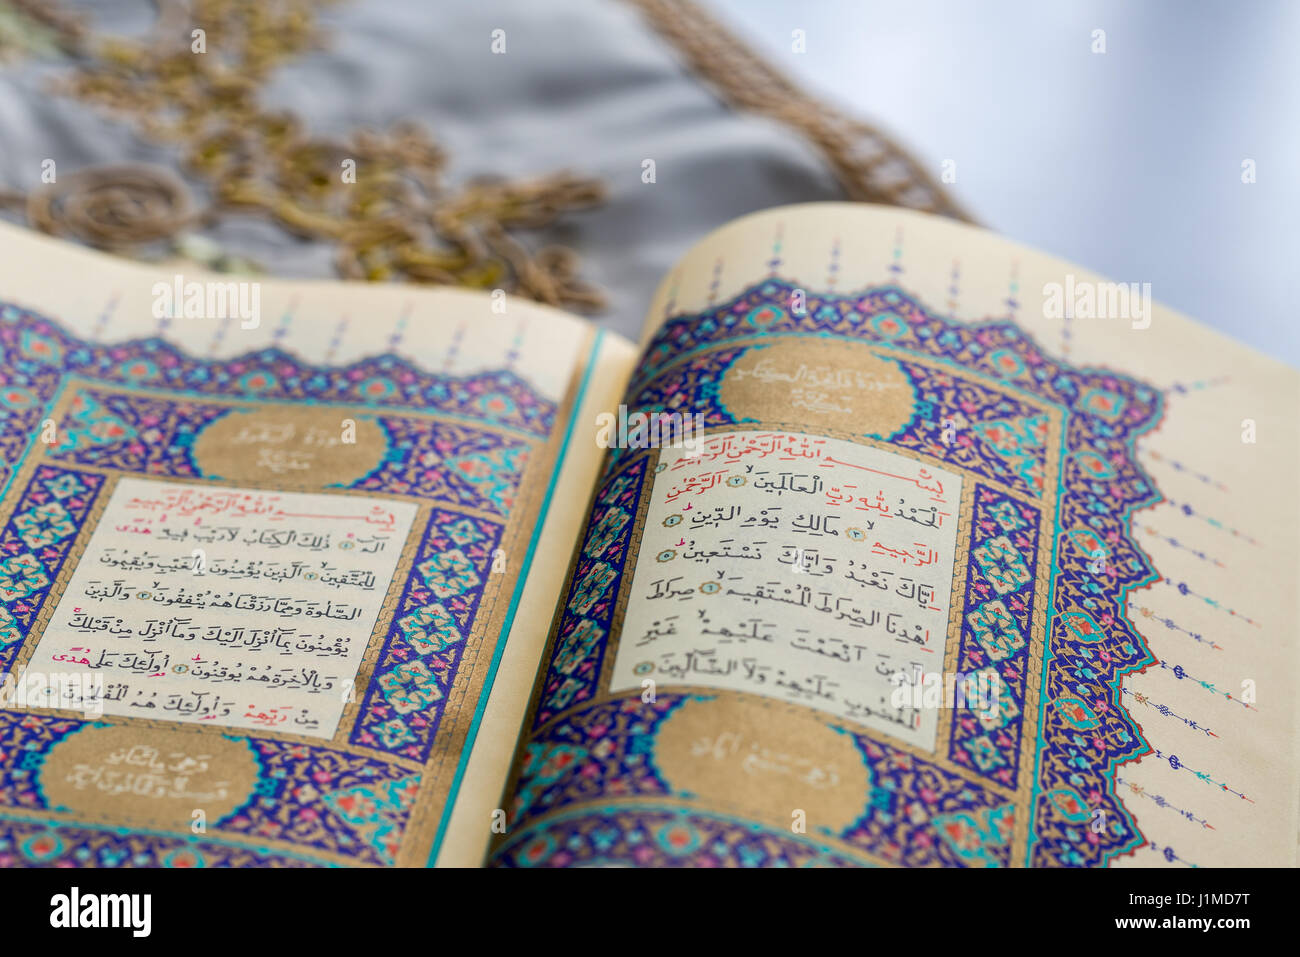 سورة فاتحة الكتاب
بِسْمِ اللهِ الرَّحْمٰنِ الرَّحِيمِ ١
اَلْحَمْدُ لِلّٰهِ رَبِّ الْعَالَمِينَ ٢ اَلرَّحْمٰنِ
الرَّحِيمِ ٣ مَالِكِ يَوْمِ الدِّينِ ٤
اِيَّاكَ نَعْبُدُ وَاِيَّاكَ نَسْتَعِينُ ٥
اِهْدِنَا الصِّرَاطَ الْمُسْتَقِيمَ ٦ صِرَاطَ
الَّذِينَ اَنْعَمْتَ عَلَيْهِمْ غَيْرِ
الْمَغْضُوبِ عَلَيْهِمْ وَلَا الضَّالِّينَ ٧
وهي سبع آيات
سورة البقرة
بِسْمِ اللهِ الرَّحْمٰنِ الرَّحِيمِ
الٓمٓ ١ ذٰلِكَ الْكِتَابُ لَا رَيْبَ فِيهِ هُدًى
لِلْمُتَّقِينَ ٢ اَلَّذِينَ يُؤْمِنُونَ بِالْغَيْبِ وَيُقِيمُونَ
الصَّلٰوةَ وَمِمَّا رَزَقْنَاهُمْ يُنْفِقُونَ ٣ وَالَّذِينَ
يُؤْمِنُونَ بِمَٓا اُنْزِلَ اِلَيْكَ وَمَٓا اُنْزِلَ مِنْ قَبْلِكَ
وَبِالْاٰخِرَةِ هُمْ يُوقِنُونَ ٤ اُو۬لٰٓئِكَ عَلٰى هُدًى
مِنْ رَبِّهِمْ وَاُو۬لٰٓئِكَ هُمُ الْمُفْلِحُونَ ٥
alamy
Image ID: J1MD7T
www.alamy.com